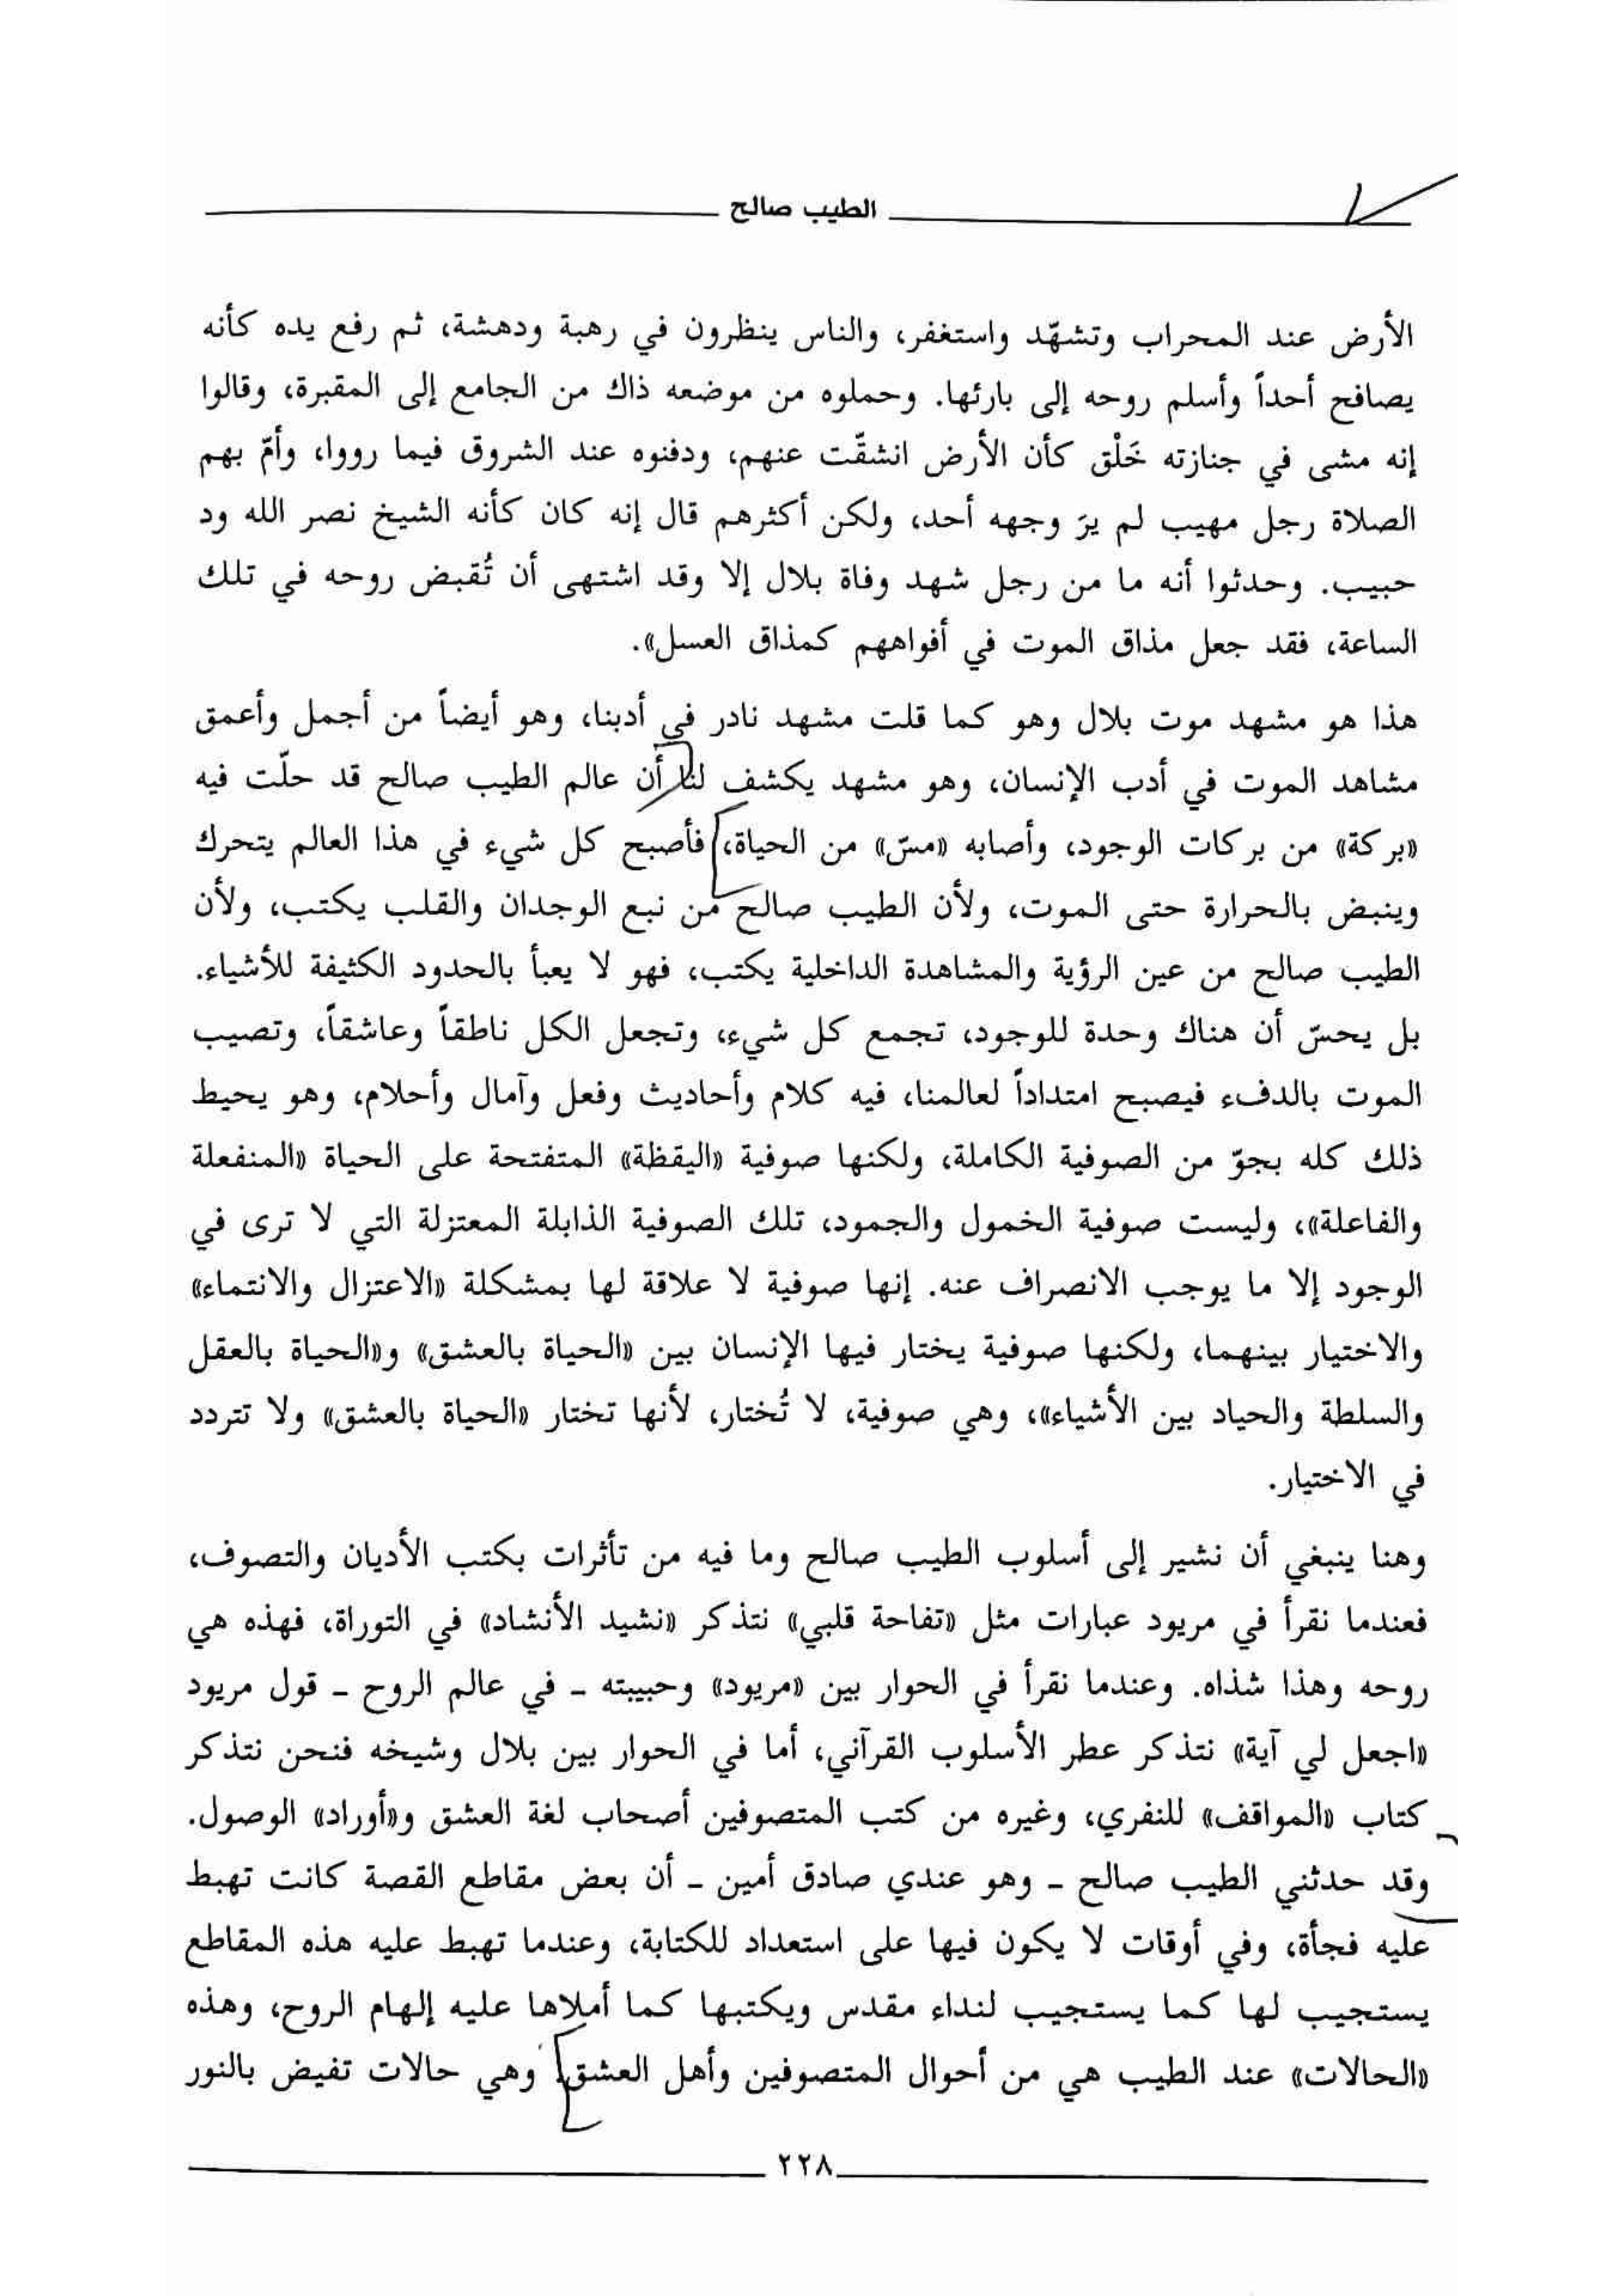 الطيب صالح
الأرض عند المحراب وتشهّد واستغفر، والناس ينظرون في رهبة ودهشة، ثم رفع يده كأنه
يصافح أحداً وأسلم روحه إلى بارئها. وحملوه من موضعه ذاك من الجامع إلى المقبرة، وقالوا
إنه مشى في جنازته خَلْق كأن الأرض انشقّت عنهم، ودفنوه عند الشروق فيما رووا، وأمّ بهم
الصلاة رجل مهيب لم يرَ وجهه أحد، ولكن أكثرهم قال إنه كان كأنه الشيخ نصر الله ود
حبيب. وحدثوا أنه ما من رجل شهد وفاة بلال إلا وقد اشتهى أن تُقبض روحه في تلك
الساعة، فقد جعل مذاق الموت في أفواههم كمذاق العسل».
هذا هو مشهد موت بلال وهو كما قلت مشهد نادر في أدبنا، وهو أيضاً من أجمل وأعمق
مشاهد الموت في أدب الإنسان، وهو مشهد يكشف لنا أن عالم الطيب صالح قد حلّت فيه
«بركة» من بركات الوجود، وأصابه «مسّ» من الحياة، فأصبح كل شيء في هذا العالم يتحرك
وينبض بالحرارة حتى الموت، ولأن الطيب صالح من نبع الوجدان والقلب يكتب، ولأن
الطيب صالح من عين الرؤية والمشاهدة الداخلية يكتب، فهو لا يعبأ بالحدود الكثيفة للأشياء.
بل يحسّ أن هناك وحدة للوجود، تجمع كل شيء، وتجعل الكل ناطقاً وعاشقاً، وتصيب
الموت بالدفء فيصبح امتداداً لعالمنا، فيه كلام وأحاديث وفعل وآمال وأحلام، وهو يحيط
ذلك كله بجوّ من الصوفية الكاملة، ولكنها صوفية «اليقظة» المتفتحة على الحياة «المنفعلة
والفاعلة»، وليست صوفية الخمول والجمود، تلك الصوفية الذابلة المعتزلة التي لا ترى في
الوجود إلا ما يوجب الانصراف عنه. إنها صوفية لا علاقة لها بمشكلة «الاعتزال والانتماء»
والاختيار بينهما، ولكنها صوفية يختار فيها الإنسان بين «الحياة بالعشق» و«الحياة بالعقل
والسلطة والحياد بين الأشياء»، وهي صوفية، لا تُختار، لأنها تختار «الحياة بالعشق» ولا تتردد
في الاختيار.
وهنا ينبغي أن نشير إلى أسلوب الطيب صالح وما فيه من تأثرات بكتب الأديان والتصوف،
فعندما نقرأ في مريود عبارات مثل «تفاحة قلبي» نتذكر «نشيد الأنشاد» في التوراة، فهذه هي
روحه وهذا شذاه. وعندما نقرأ في الحوار بين «مريود» وحبيبته ـ في عالم الروح ـ قول مريود
«اجعل لي آية» نتذكر عطر الأسلوب القرآني، أما في الحوار بين بلال وشيخه فنحن نتذكر
كتاب «المواقف» للنفري، وغيره من كتب المتصوفين أصحاب لغة العشق و«أوراد» الوصول.
وقد حدثني الطيب صالح ـ وهو عندي صادق أمين ـ أن بعض مقاطع القصة كانت تهبط
عليه فجأة، وفي أوقات لا يكون فيها على استعداد للكتابة، وعندما تهبط عليه هذه المقاطع
يستجيب لها كما يستجيب لنداء مقدس ويكتبها كما أملاها عليه إلهام الروح، وهذه
«الحالات» عند الطيب هي من أحوال المتصوفين وأهل العشق، وهي حالات تفيض بالنور
٢٢٨